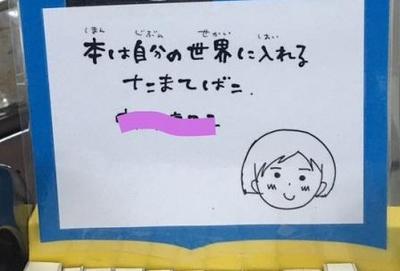 ほん じぶん せかい はい
本は自分の世界に入れる
たまてばこ.